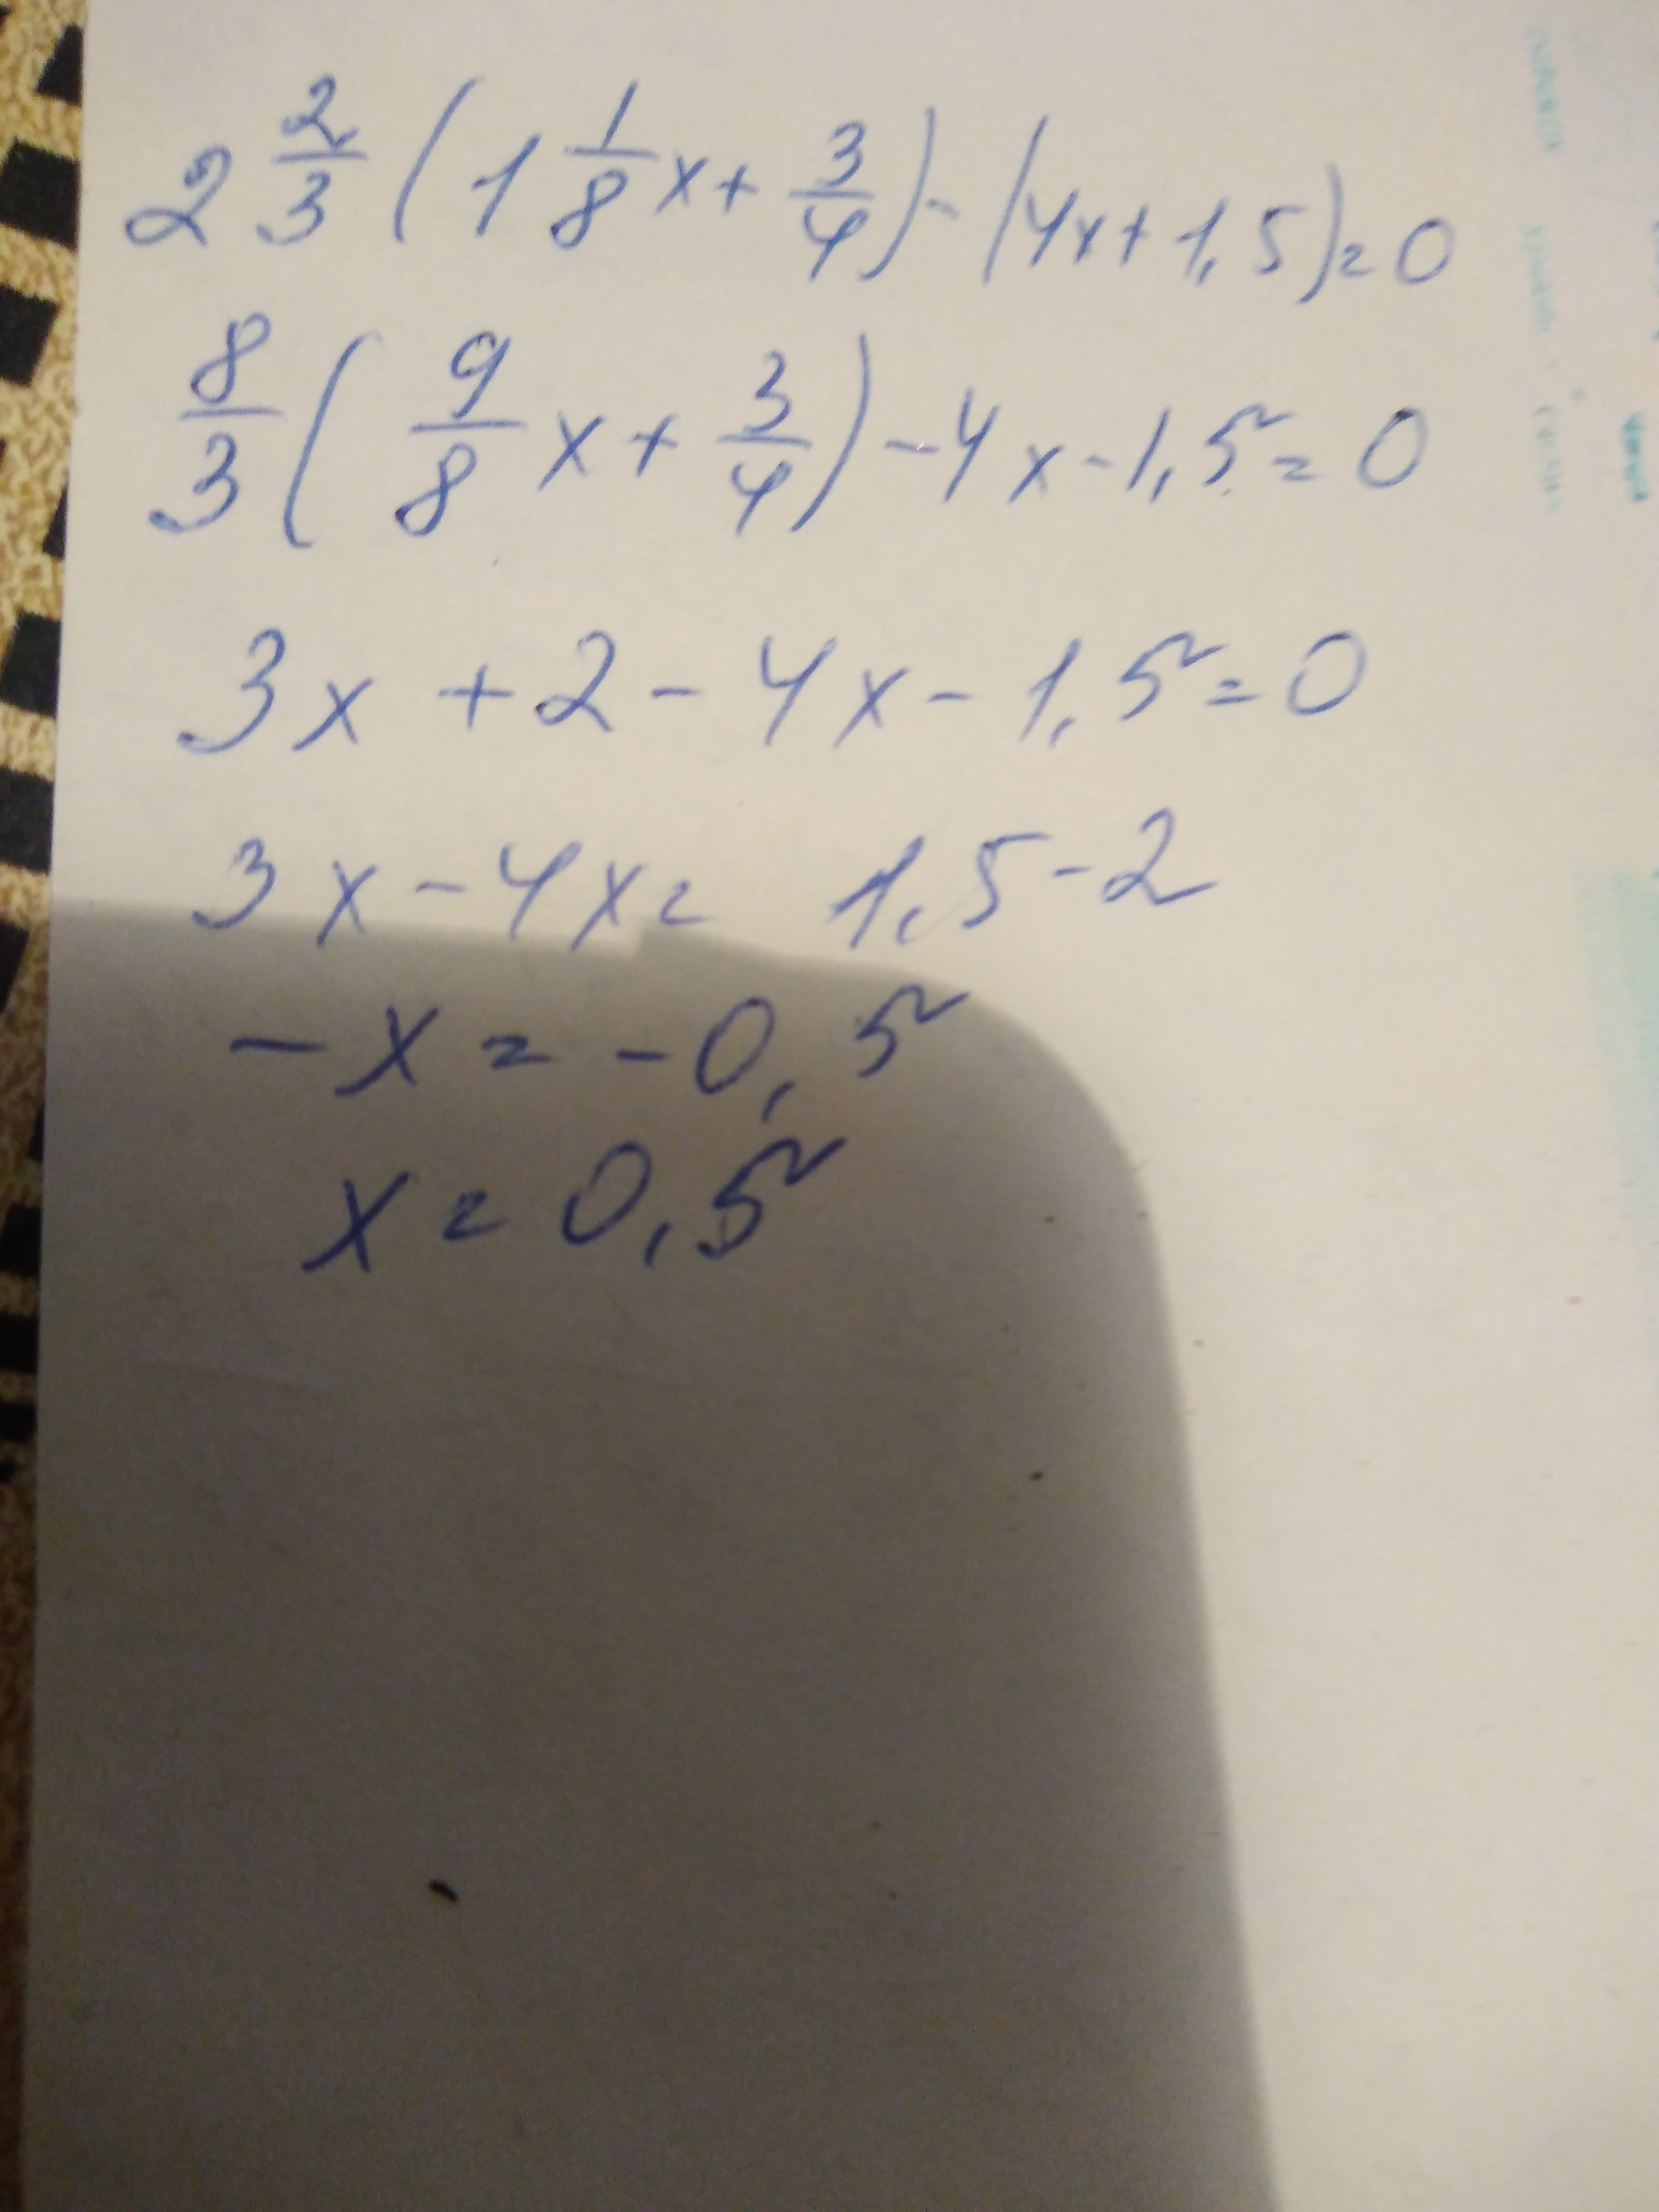 2 2/3 (1 1/8 x + 3/4) - (4x + 1,5) = 0
8/3 (9/8 x + 3/4) - 4x - 1,5 = 0
3x + 2 - 4x - 1,5 = 0
3x - 4x = 1,5 - 2
-x = -0,5
x = 0,5